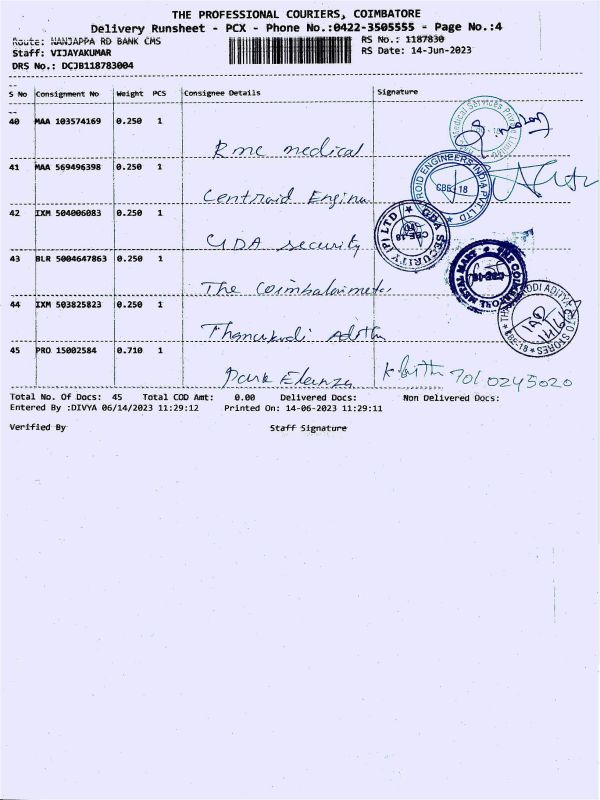 THE PROFESSIONAL COURIERS, COIMBATORE
Delivery Runsheet - PCX - Phone No.:0422-3505555 - Page No.:4
Route: NANJAPPA RD BANK CMS
RS No.: 1187830
Staff: VIJAYAKUMAR
RS Date: 14-Jun-2023
DRS No.: DCJB118783004
S No Consignment No Weight PCS Consignee Details Signature
40 MAA 103574169 0.250 1
Rmc medical
Medical Services Private Limited
41 MAA 569496398 0.250 1
Centroid Engine
ROID ENGINEERS INDIA PVT. LTD
CBE 18
42 IXM 504006083 0.250 1
GDA security
GDA SECURITY (P) LTD
CBE-18
43 BLR 5004647863 0.250 1
The Coimbatore metal
THE COIMBATORE METAL MART
CBE-18
44 IXM 503825823 0.250 1
Adithy
ADITYA AUTO STORES
CBE-18
45 PRO 15002584 0.710 1
Park Elanza
7010245020
Total No. Of Docs: 45 Total COD Amt: 0.00 Delivered Docs: Non Delivered Docs:
Entered By :DIVYA 06/14/2023 11:29:12 Printed On: 14-06-2023 11:29:11
Verified By Staff Signature